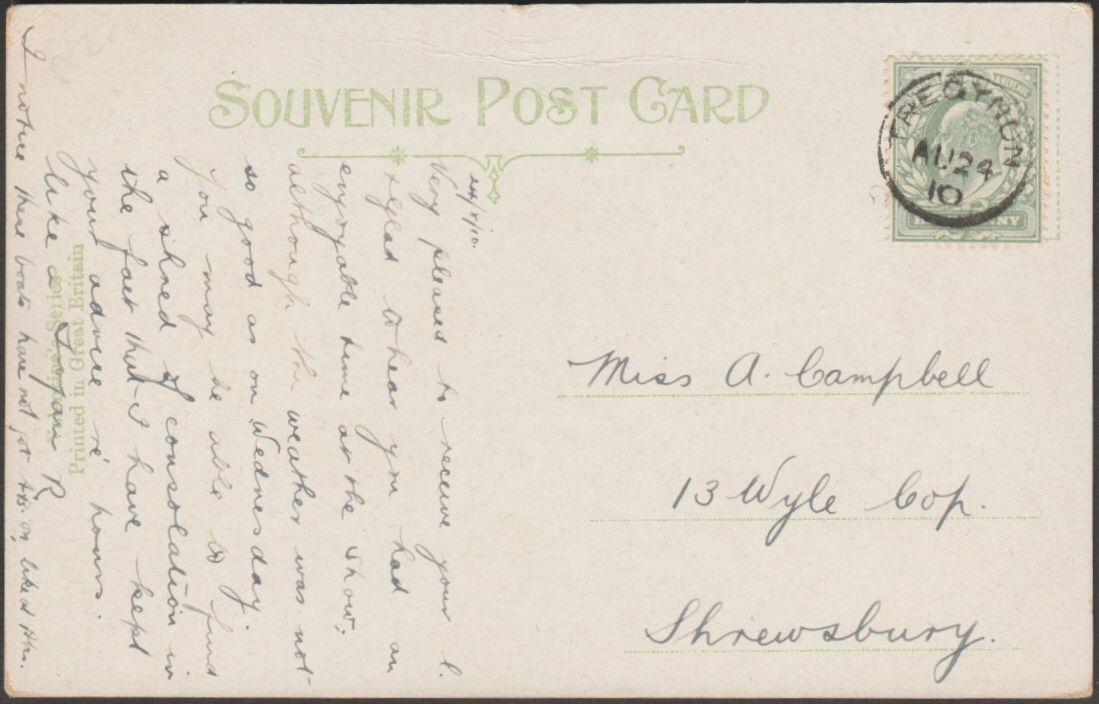 SOUVENIR POST CARD
TREGYNON
AU 24
10
24/8/10.
Very pleased to receive your l.
& glad to hear you had an
enjoyable time at the show;
although the weather was not
so good as on Wednesday.
You may be able to find
a shred of consolation in
the fact that I have kept
your advice re' hours.
like a
R
I notice these boats have not got on, like a
Series
Printed in Great Britain
Miss A. Campbell
13 Wyle Cop.
Shrewsbury.